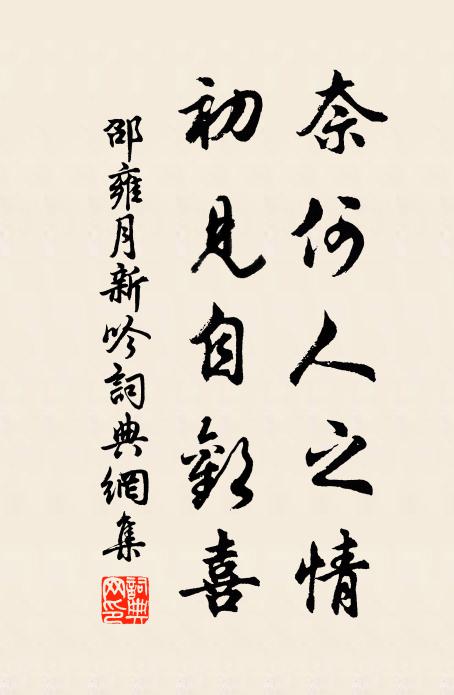 奈何人之情
初見自歡喜
邵雍月新吟詞典網集
詞典网印